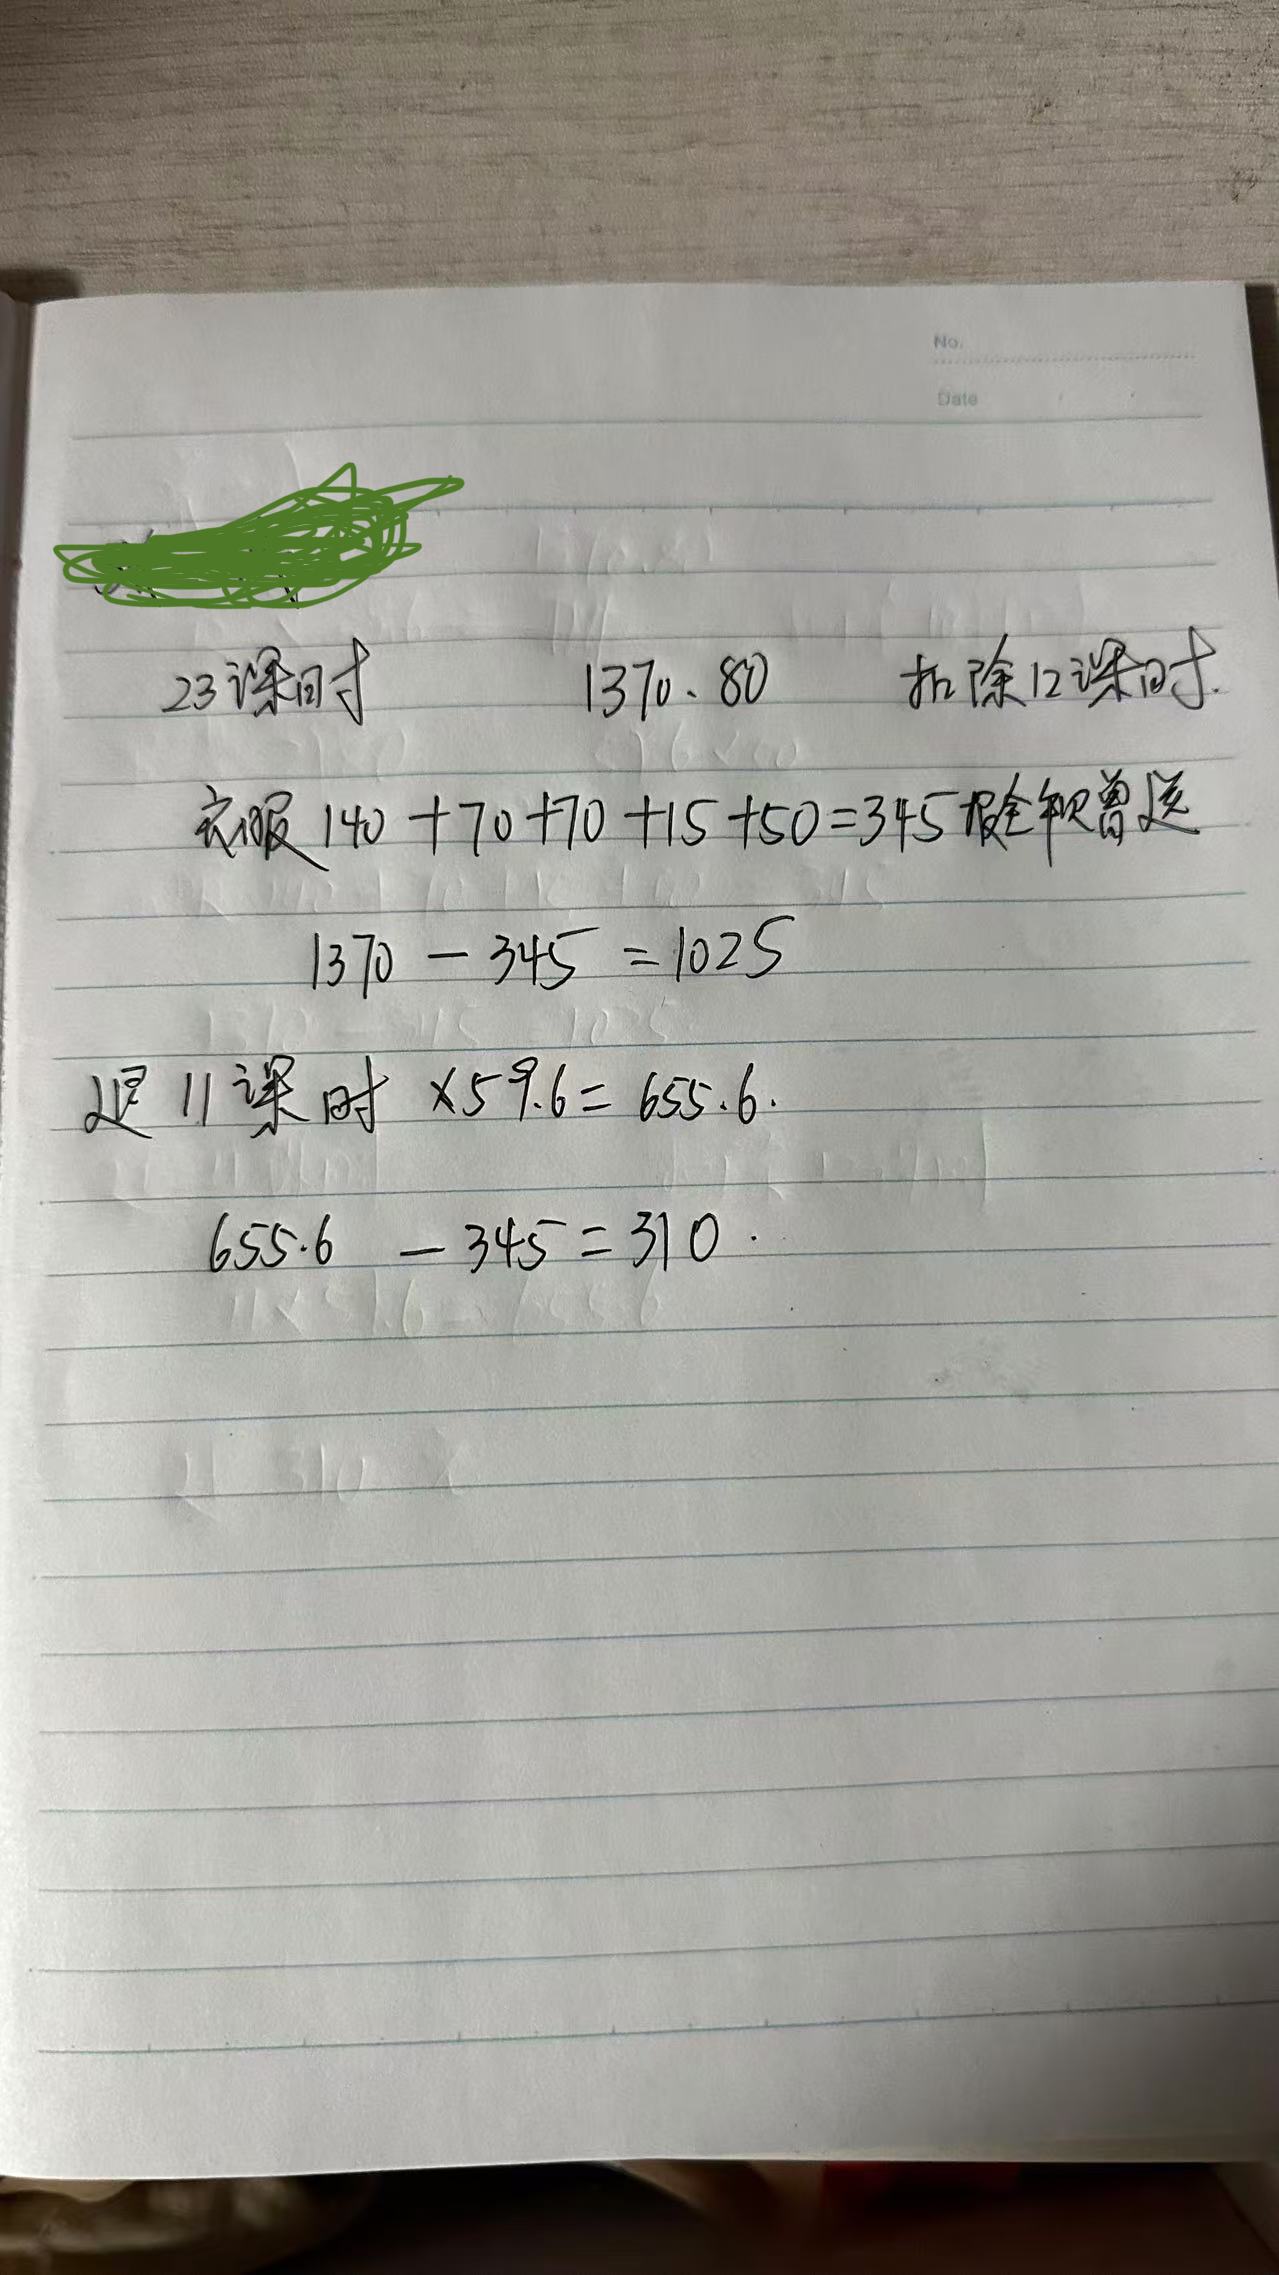 No.
Date
23课时 1370.80 扣除12课时.
衣服140+70+70+15+50=345报全年赠送
1370-345=1025
退11课时×59.6=655.6.
655.6-345=310.